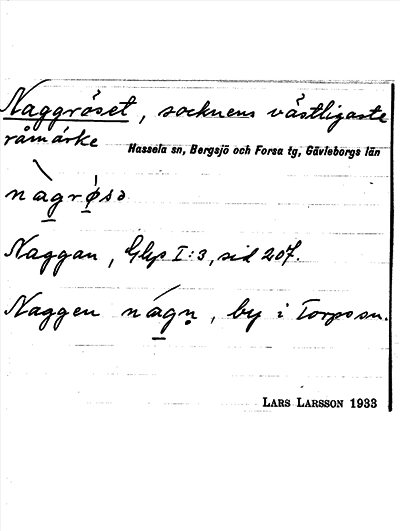 Naggröset, socknens västligaste
råmärke
Hassela sn, Bergsjö och Forsa tg, Gävleborgs län
nàgrǿsə
Naggan, Glp I:3, sid 207.
Naggen nágṇ, by i Torp sn.
LARS LARSSON 1933